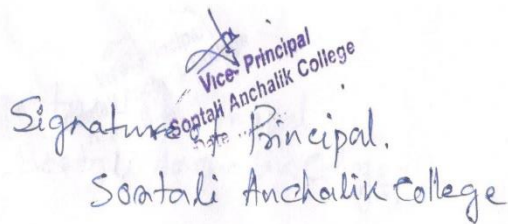 Vice- Principal
Sontali Anchalik College
Signature of Principal.
Sontali Anchalik College